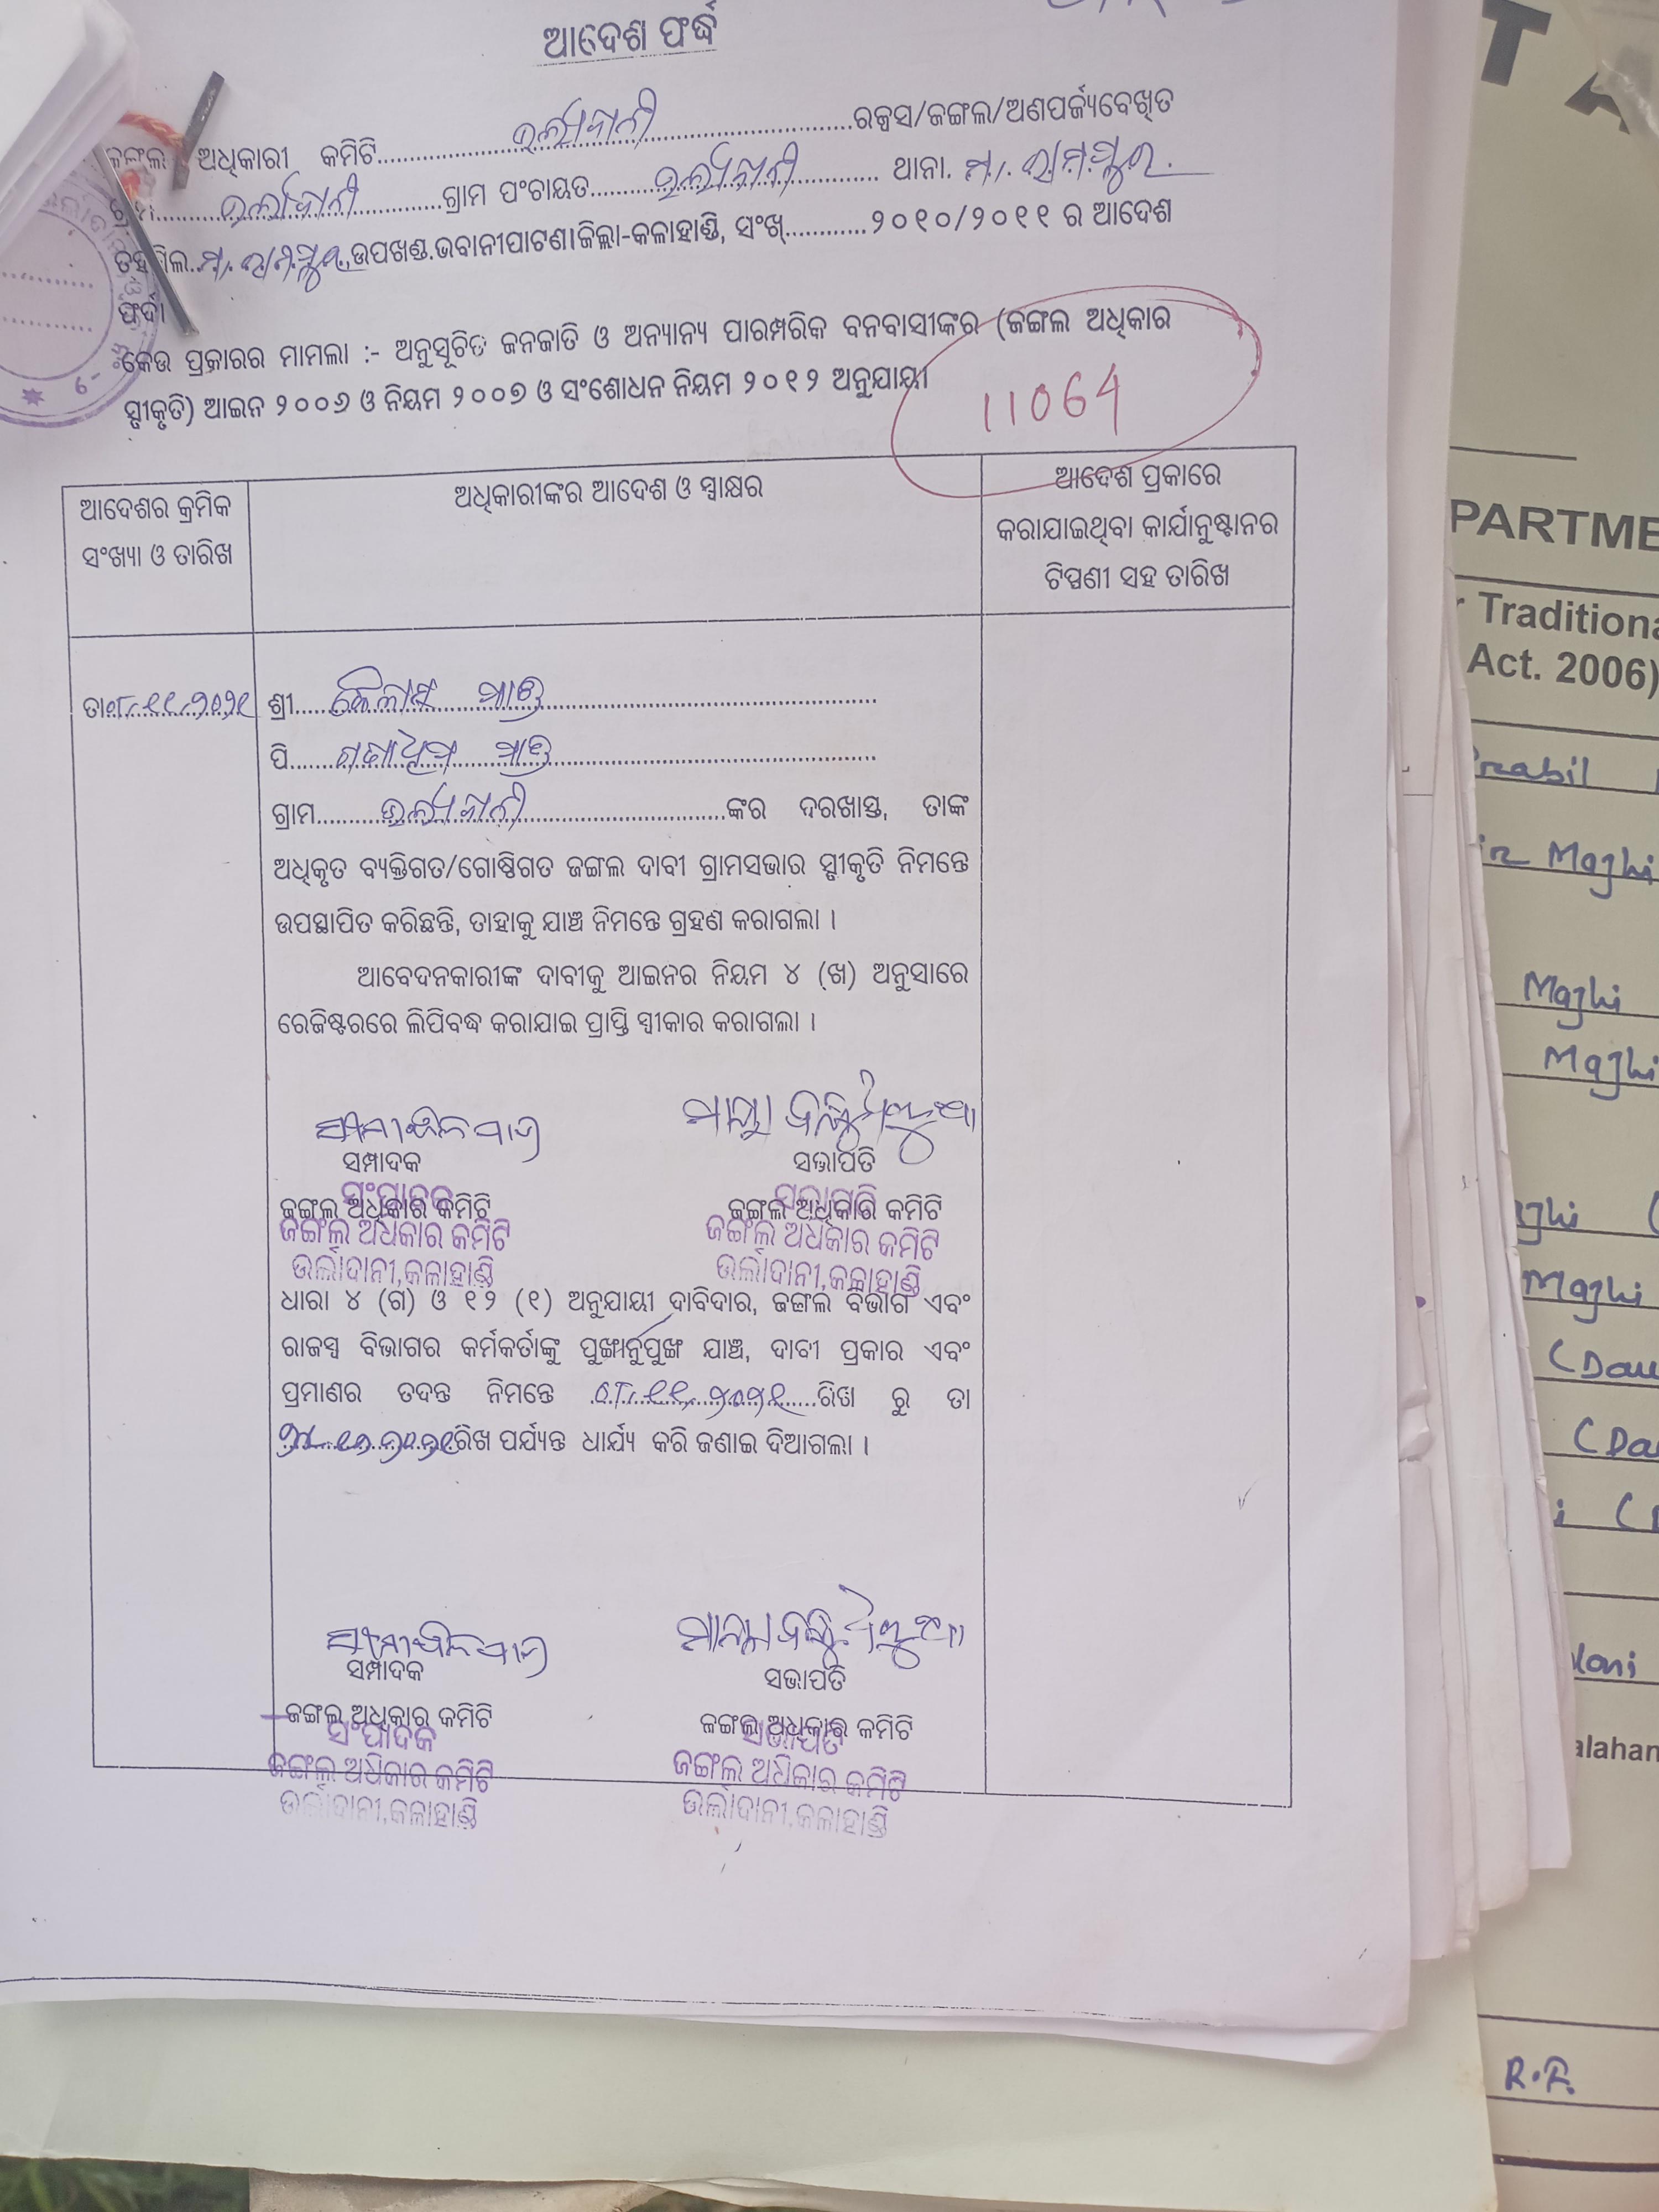 ଆଦେଶ ଫର୍ଦ୍ଦ
ଜଙ୍ଗଲ ଅଧିକାରୀ କମିଟି ଉର୍ଲାଦାନୀ ରକ୍ସସ/ଜଙ୍ଗଲ/ଅଣପର୍ଜ୍ୟବେଖିତ
ଗ୍ରାମ ଉର୍ଲାଦାନୀ ଗ୍ରାମ ପଂଚାୟତ ଉର୍ଲାଦାନୀ ଥାନା. ମ. ରାମପୁର.
ତହସିଲ ମ. ରାମପୁର, ଉପଖଣ୍ଡ.ଭବାନୀପାଟଣା ଜିଲ୍ଲା-କଳାହାଣ୍ଡି, ସଂଖ୍ ୨୦୧୦/୨୦୧୧ ର ଆଦେଶ
ଫର୍ଦ୍ଦ
କେଉ ପ୍ରକାରର ମାମଲା :- ଅନୁସୂଚିତ ଜନଜାତି ଓ ଅନ୍ୟାନ୍ୟ ପାରମ୍ପରିକ ବନବାସୀଙ୍କର (ଜଙ୍ଗଲ ଅଧିକାର
ସ୍ବୀକୃତି) ଆଇନ ୨୦୦୬ ଓ ନିୟମ ୨୦୦୭ ଓ ସଂଶୋଧନ ନିୟମ ୨୦୧୨ ଅନୁଯାୟୀ
11064
ଆଦେଶର କ୍ରମିକ
ସଂଖ୍ୟା ଓ ତାରିଖ
ଅଧିକାରୀଙ୍କର ଆଦେଶ ଓ ସ୍ୱାକ୍ଷର
ଆଦେଶ ପ୍ରକାରେ
କରାଯାଇଥିବା କାର୍ଯାନୁଷ୍ଟାନର
ଟିପ୍ପଣୀ ସହ ତାରିଖ
ତା ୦୮.୧୧.୨୦୨୧
ଶ୍ରୀ କୈଳାସ ସାହୁ
ପି ସାହୁ
ଗ୍ରାମ ଉର୍ଲାଦାନୀ ଙ୍କର ଦରଖାସ୍ତ, ତାଙ୍କ
ଅଧିକୃତ ବ୍ୟକ୍ତିଗତ/ଗୋଷ୍ଠିଗତ ଜଙ୍ଗଲ ଦାବୀ ଗ୍ରାମସଭାର ସ୍ବୀକୃତି ନିମନ୍ତେ
ଉପସ୍ଥାପିତ କରିଛନ୍ତି, ତାହାକୁ ଯାଞ୍ଚ ନିମନ୍ତେ ଗ୍ରହଣ କରାଗଲା ।
ଆବେଦନକାରୀଙ୍କ ଦାବୀକୁ ଆଇନର ନିୟମ ୪ (ଖ) ଅନୁସାରେ
ରେଜିଷ୍ଟରରେ ଲିପିବଦ୍ଧ କରାଯାଇ ପ୍ରାପ୍ତି ସ୍ୱୀକାର କରାଗଲା ।
ସମ୍ପାଦକ ସଭାପତି
ସଂପାଦକ ସଭାପତି
ଜଙ୍ଗଲ ଅଧିକାର କମିଟି ଜଙ୍ଗଲ ଅଧିକାର କମିଟି
ଜଙ୍ଗଲ ଅଧିକାର କମିଟି ଜଙ୍ଗଲ ଅଧିକାର କମିଟି
ଉର୍ଲାଦାନୀ,କଳାହାଣ୍ଡି ଉର୍ଲାଦାନୀ,କଳାହାଣ୍ଡି
ଧାରା ୪ (ଗ) ଓ ୧୨ (୧) ଅନୁଯାୟୀ ଦାବିଦାର, ଜଙ୍ଗଲ ବିଭାଗ ଏବଂ
ରାଜସ୍ୱ ବିଭାଗର କର୍ମକର୍ତାଙ୍କୁ ପୁଙ୍ଖାର୍ନୁପୁଙ୍ଖ ଯାଞ୍ଚ, ଦାବୀ ପ୍ରକାର ଏବଂ
ପ୍ରମାଣର ତଦନ୍ତ ନିମନ୍ତେ ୦୮.୧୧.୨୦୨୧ ରିଖ ରୁ ତା
ରିଖ ପର୍ଯ୍ୟନ୍ତ ଧାର୍ଯ୍ୟ କରି ଜଣାଇ ଦିଆଗଲା ।
ସମ୍ପାଦକ ସଭାପତି
ଜଙ୍ଗଲ ଅଧିକାର କମିଟି ଜଙ୍ଗଲ ଅଧିକାର କମିଟି
ସଂପାଦକ ସଭାପତି
ଜଙ୍ଗଲ ଅଧିକାର କମିଟି ଜଙ୍ଗଲ ଅଧିକାର କମିଟି
ଉର୍ଲାଦାନୀ,କଳାହାଣ୍ଡି ଉର୍ଲାଦାନୀ,କଳାହାଣ୍ଡି
T A
PARTME
Traditiona
Act. 2006)
Majhi
Majhi
Majhi
Majhi
(Dau
(Da
R.F.